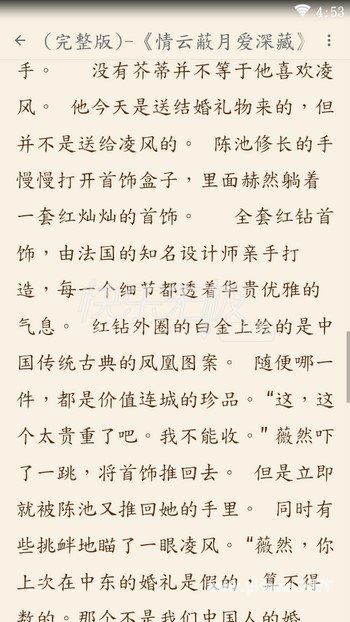 4:53
← (完整版)-《情云蔽月爱深藏》
手。 没有芥蒂并不等于他喜欢凌
风。 他今天是送结婚礼物来的，但
并不是送给凌风的。 陈池修长的手
慢慢打开首饰盒子，里面赫然躺着
一套红灿灿的首饰。 全套红钻首
饰，由法国的知名设计师亲手打
造，每一个细节都透着华贵优雅的
气息。 红钻外圈的白金上绘的是中
国传统古典的凤凰图案。 随便哪一
件，都是价值连城的珍品。 “这，这
个太贵重了吧。我不能收。” 薇然吓
了一跳，将首饰推回去。 但是立即
就被陈池又推回她的手里。 同时有
些挑衅地瞄了一眼凌风。 “薇然，你
上次在中东的婚礼是假的，算不得
数的。那个不是我们中国人的婚